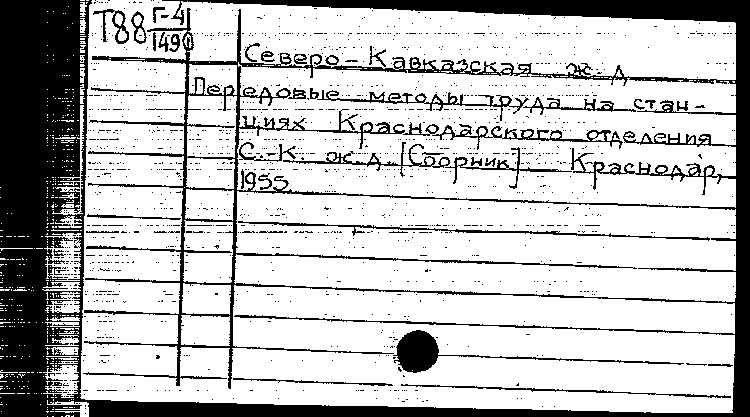 Т88 Г-4
1490
Северо-Кавказская ж. д.
Передовые методы труда на стан-
циях Краснодарского отделения
С.-К. ж. д. [Сборник] Краснодар,
1955.